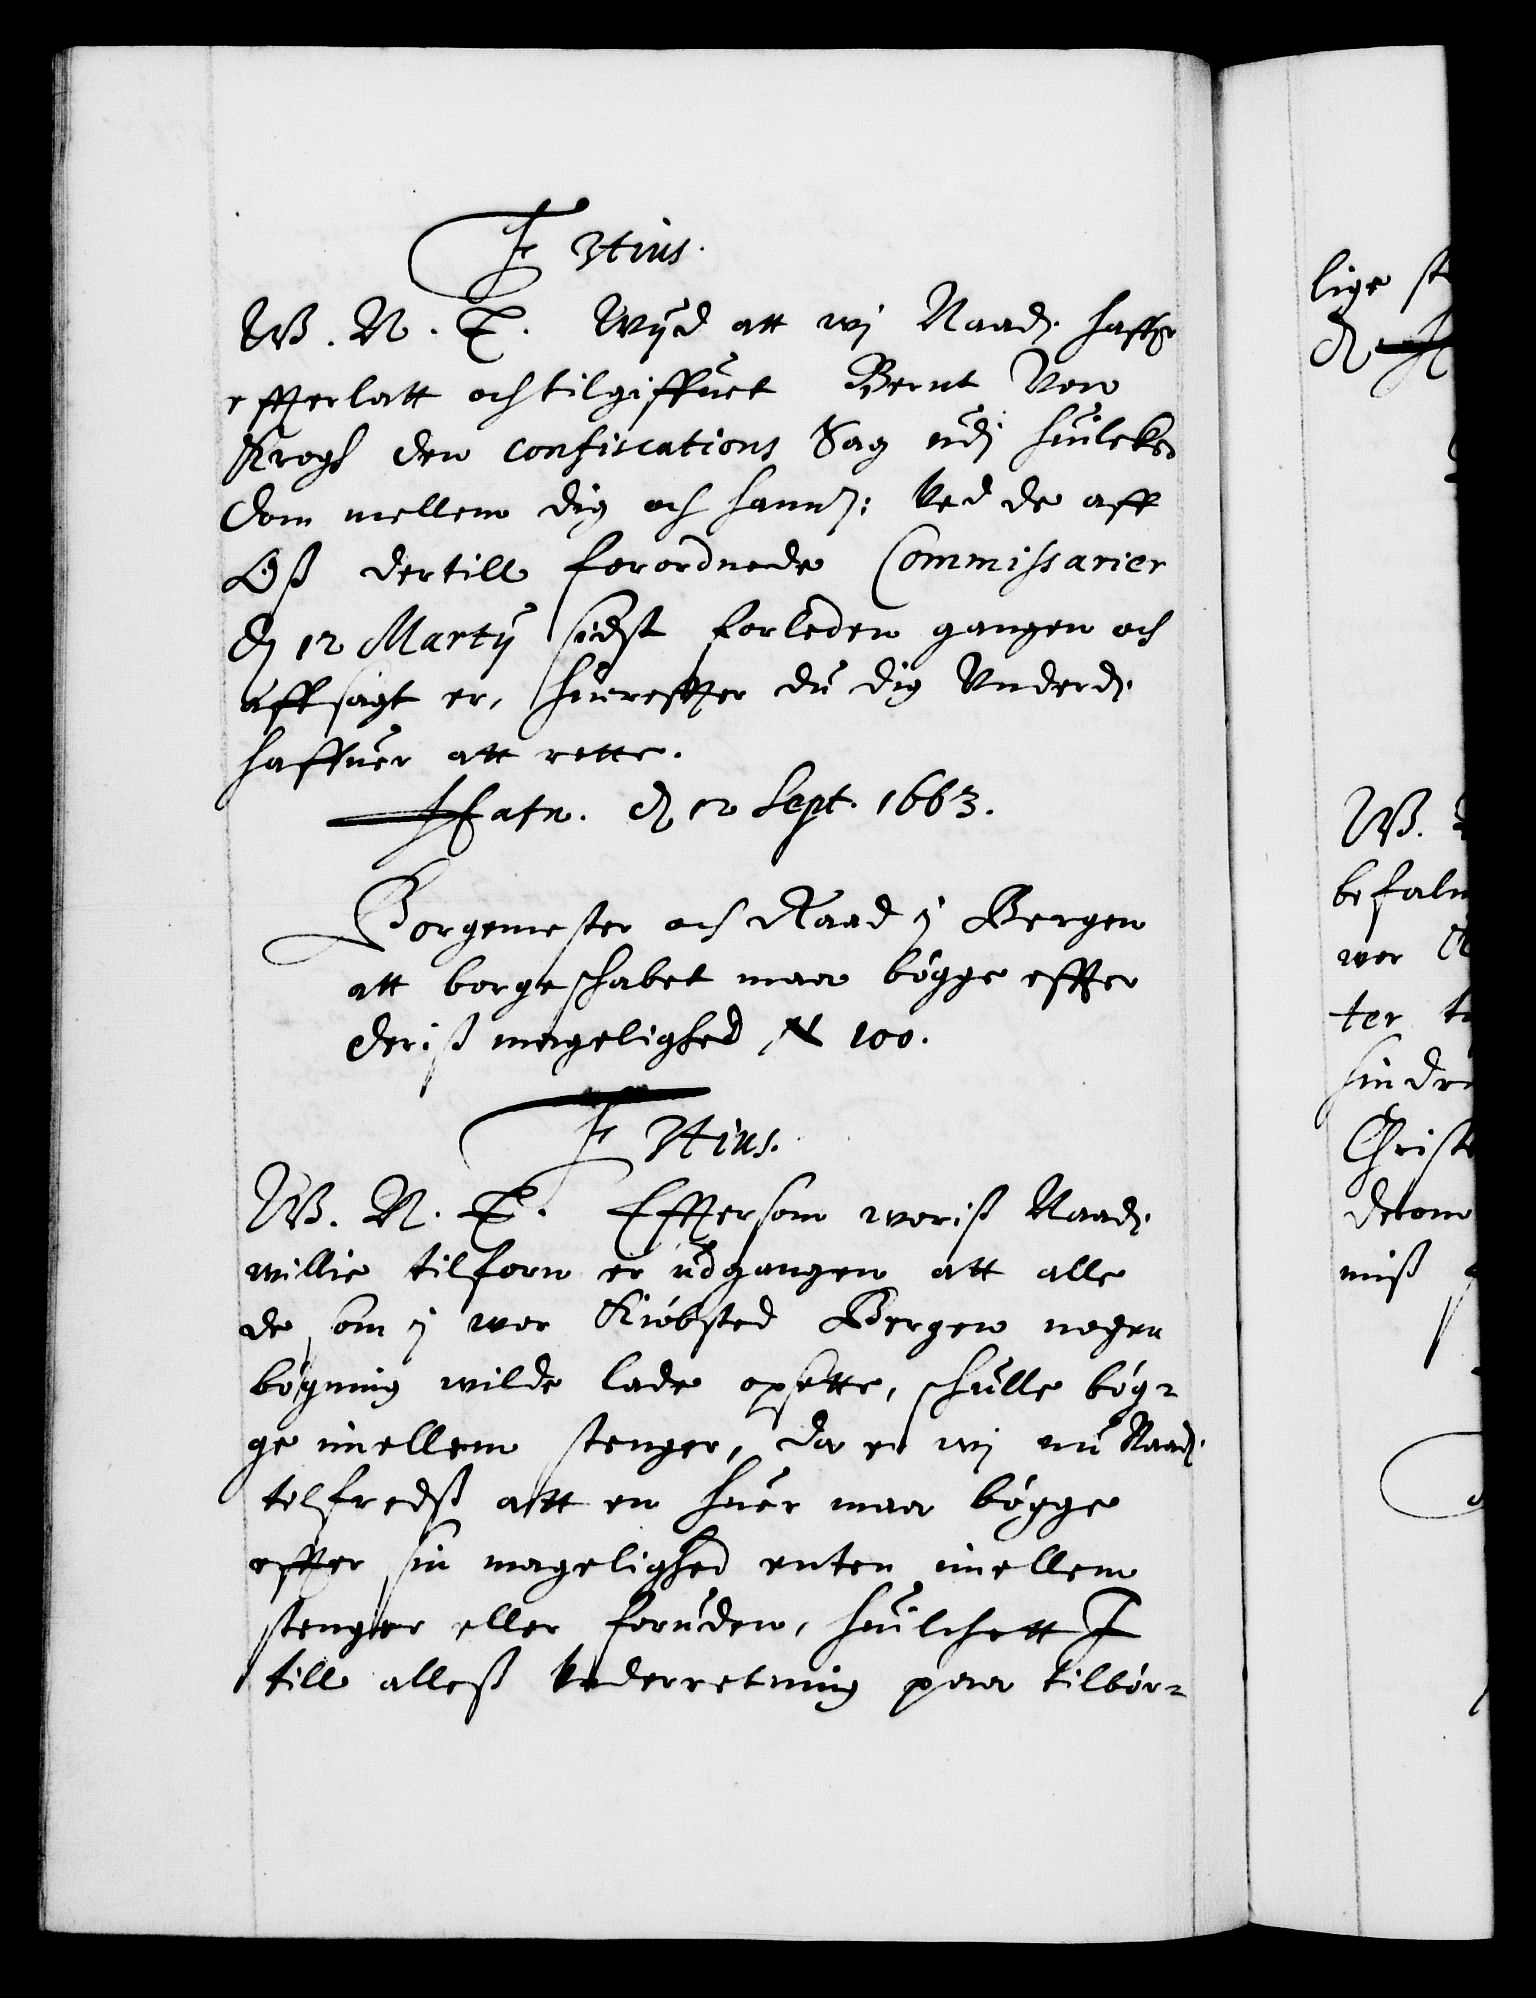 F 3tius.
W. N. T. Wijd att wj Naadj. haffr
efterlatt och tilgiffuet Bernt Von
Krogh den confiscations Sag udj huilcken
dom mellem dig och hannem: Ved de aff
Oß dertill forordnede Commissarier
dj 12 Martij sidst forleden gangen och
affsagt er, huorefter du dig Underdj.
haffuer att rette.
Hafn. dj 12 Sept. 1663.
Borgemester och Raad j Bergen
att borgeschabet maa bögge efter
deriß magelighed N 100.
F 3tius.
W. N. T. Eftersom woriß Naadj.
willie tilforn er udgangen att alle
de som j wor Kiöbsted Bergen nogen
bögning wilde lade opsette, schulle bög-
ge imellem stenger, da er wj nu Naadj.
tilfredß att en huer maa bögge
efter sin magelighed enten imellem
stenger eller foruden, huilchett I
till alleß Underretning paa tilbör-
lige st
W.
befaln
wor
ter
hindre
Christ
derom
miß